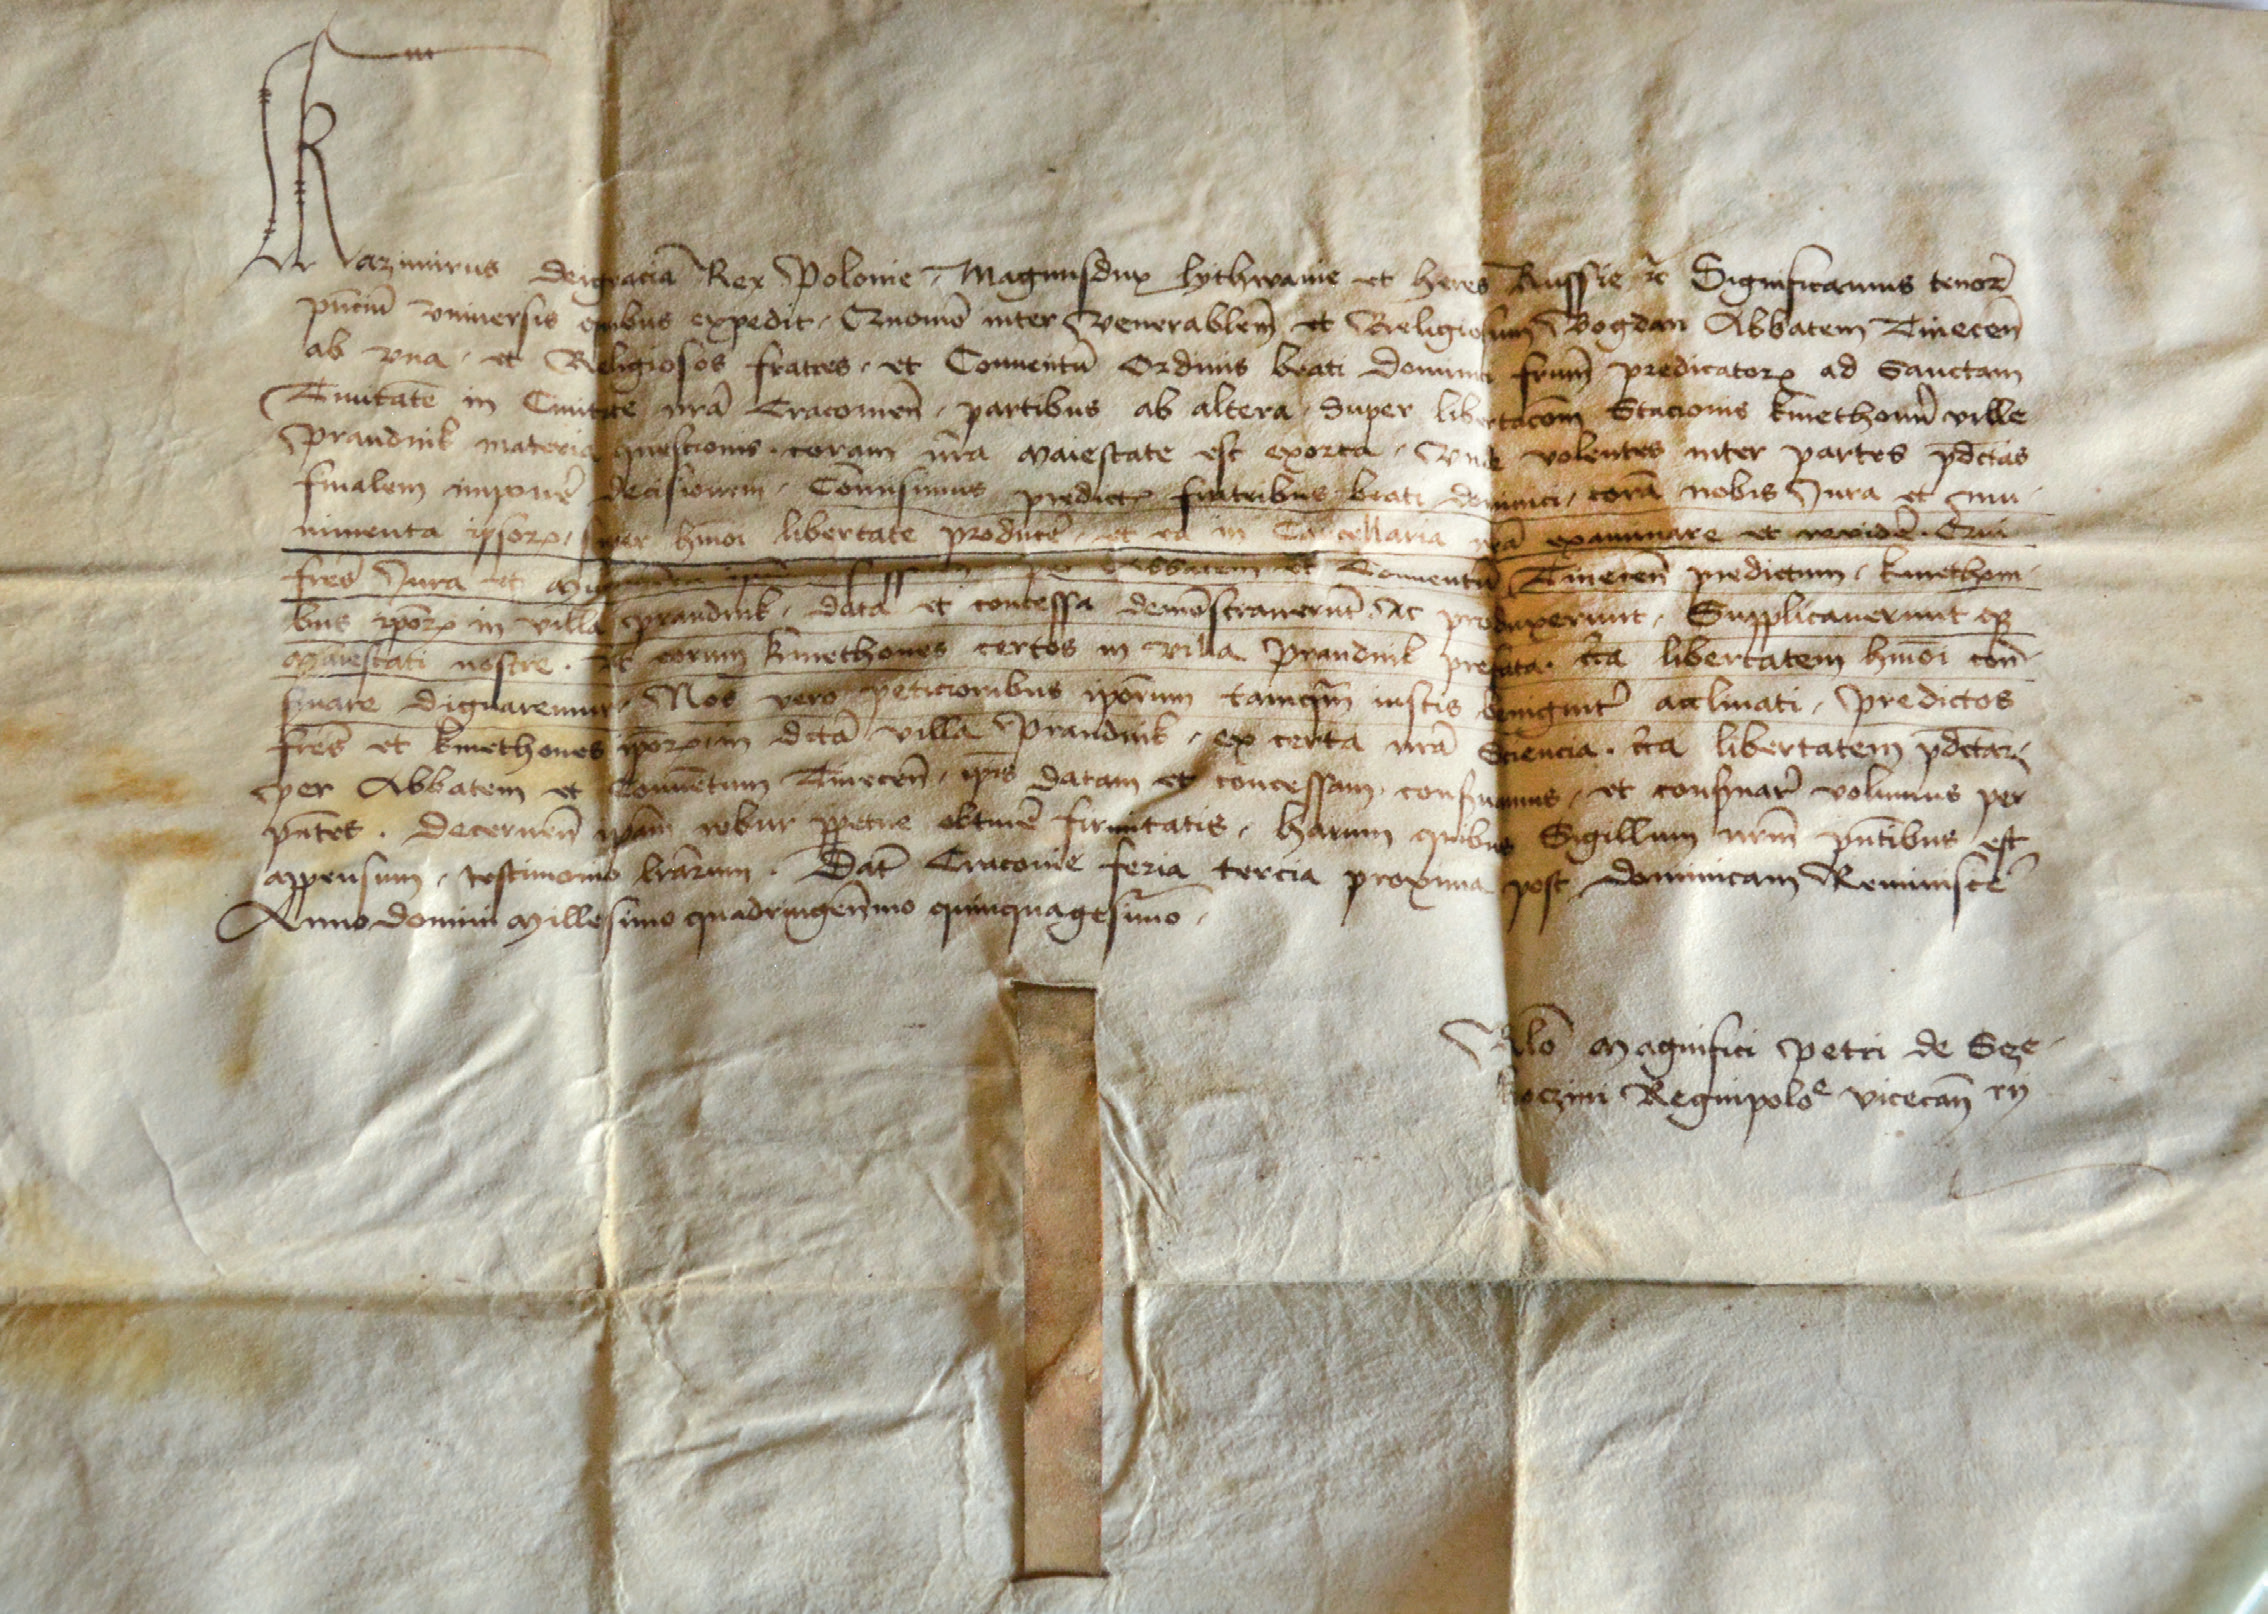 Kazimirus deigracia Rex Polonie, Magnusdux lythwanie et heres Russie ⁊c Significamus tenor̄
pn̄ciū vniuersis qūibus expedit, Quomō inter Venerabilem̄ et Religiosum Bogdan Abbatem Tinecen̄
ab vna, et Religiosos fratres, et Conuentū Ordinis beati dominici frūm predicatorꝝ ad Sanctam
Trinitatē in Ciuitate nr̄a Cracouien̄, partibus ab altera, Super libertacōm Stacionis kmethonū ville
Prandnik materia questionis coram nr̄a Maiestate est exorta, Vnde volentes inter partes pd̄ctas
finalem imponē decisionem, Cōmisimus predictꝭ fratribus beati dominici, corā nobis Jura et mu-
nimenta ipsorꝝ, super hmōi libertate producē, et ea in Cancellaria nr̄a examinare et reuidē. Qui
fres̄ Jura et Abbatem et Conuentū Tinecen̄ predictum, kmethoni-
bus ipōrꝝ in villa Prandnik, data et concessa demōstrauerūt Ac produxerunt, Supplicauerunt qꝫ
Maiestati nostre. Vt eorum kmethones certos in villa Prandnik prefata. libertatem hmōi con-
firmare dignaremur, Nos vero peticionibus ipōrum tamqm̄ iustis benignitr̄ acclinati, Predictos
fres̄ et kmethones ipōrꝝ in dcta villa Prandnik, ex certa nr̄a Sciencia. libertatem pd̄ctam
per Abbatem et Conuētum Tinecen̄, ip̄is datam et concessam, confirmamus, et confirmar̄ volumus per
pn̄tes. Decernen̄ ip̄am robur ꝑpetue obtinē firmitatis, harum quibus Sigillum nr̄m pn̄tibus est
appensum, testimonio lr̄arum. Dat̄ Cracouie feria tercia proxima post dominicam Reminiscē
Anno domini Millesimo quadringen̄mo quinquagesimo.
Rlō Magnifici Petri de Sze-
koczini Regnipoloᵉ vicecan̄rij